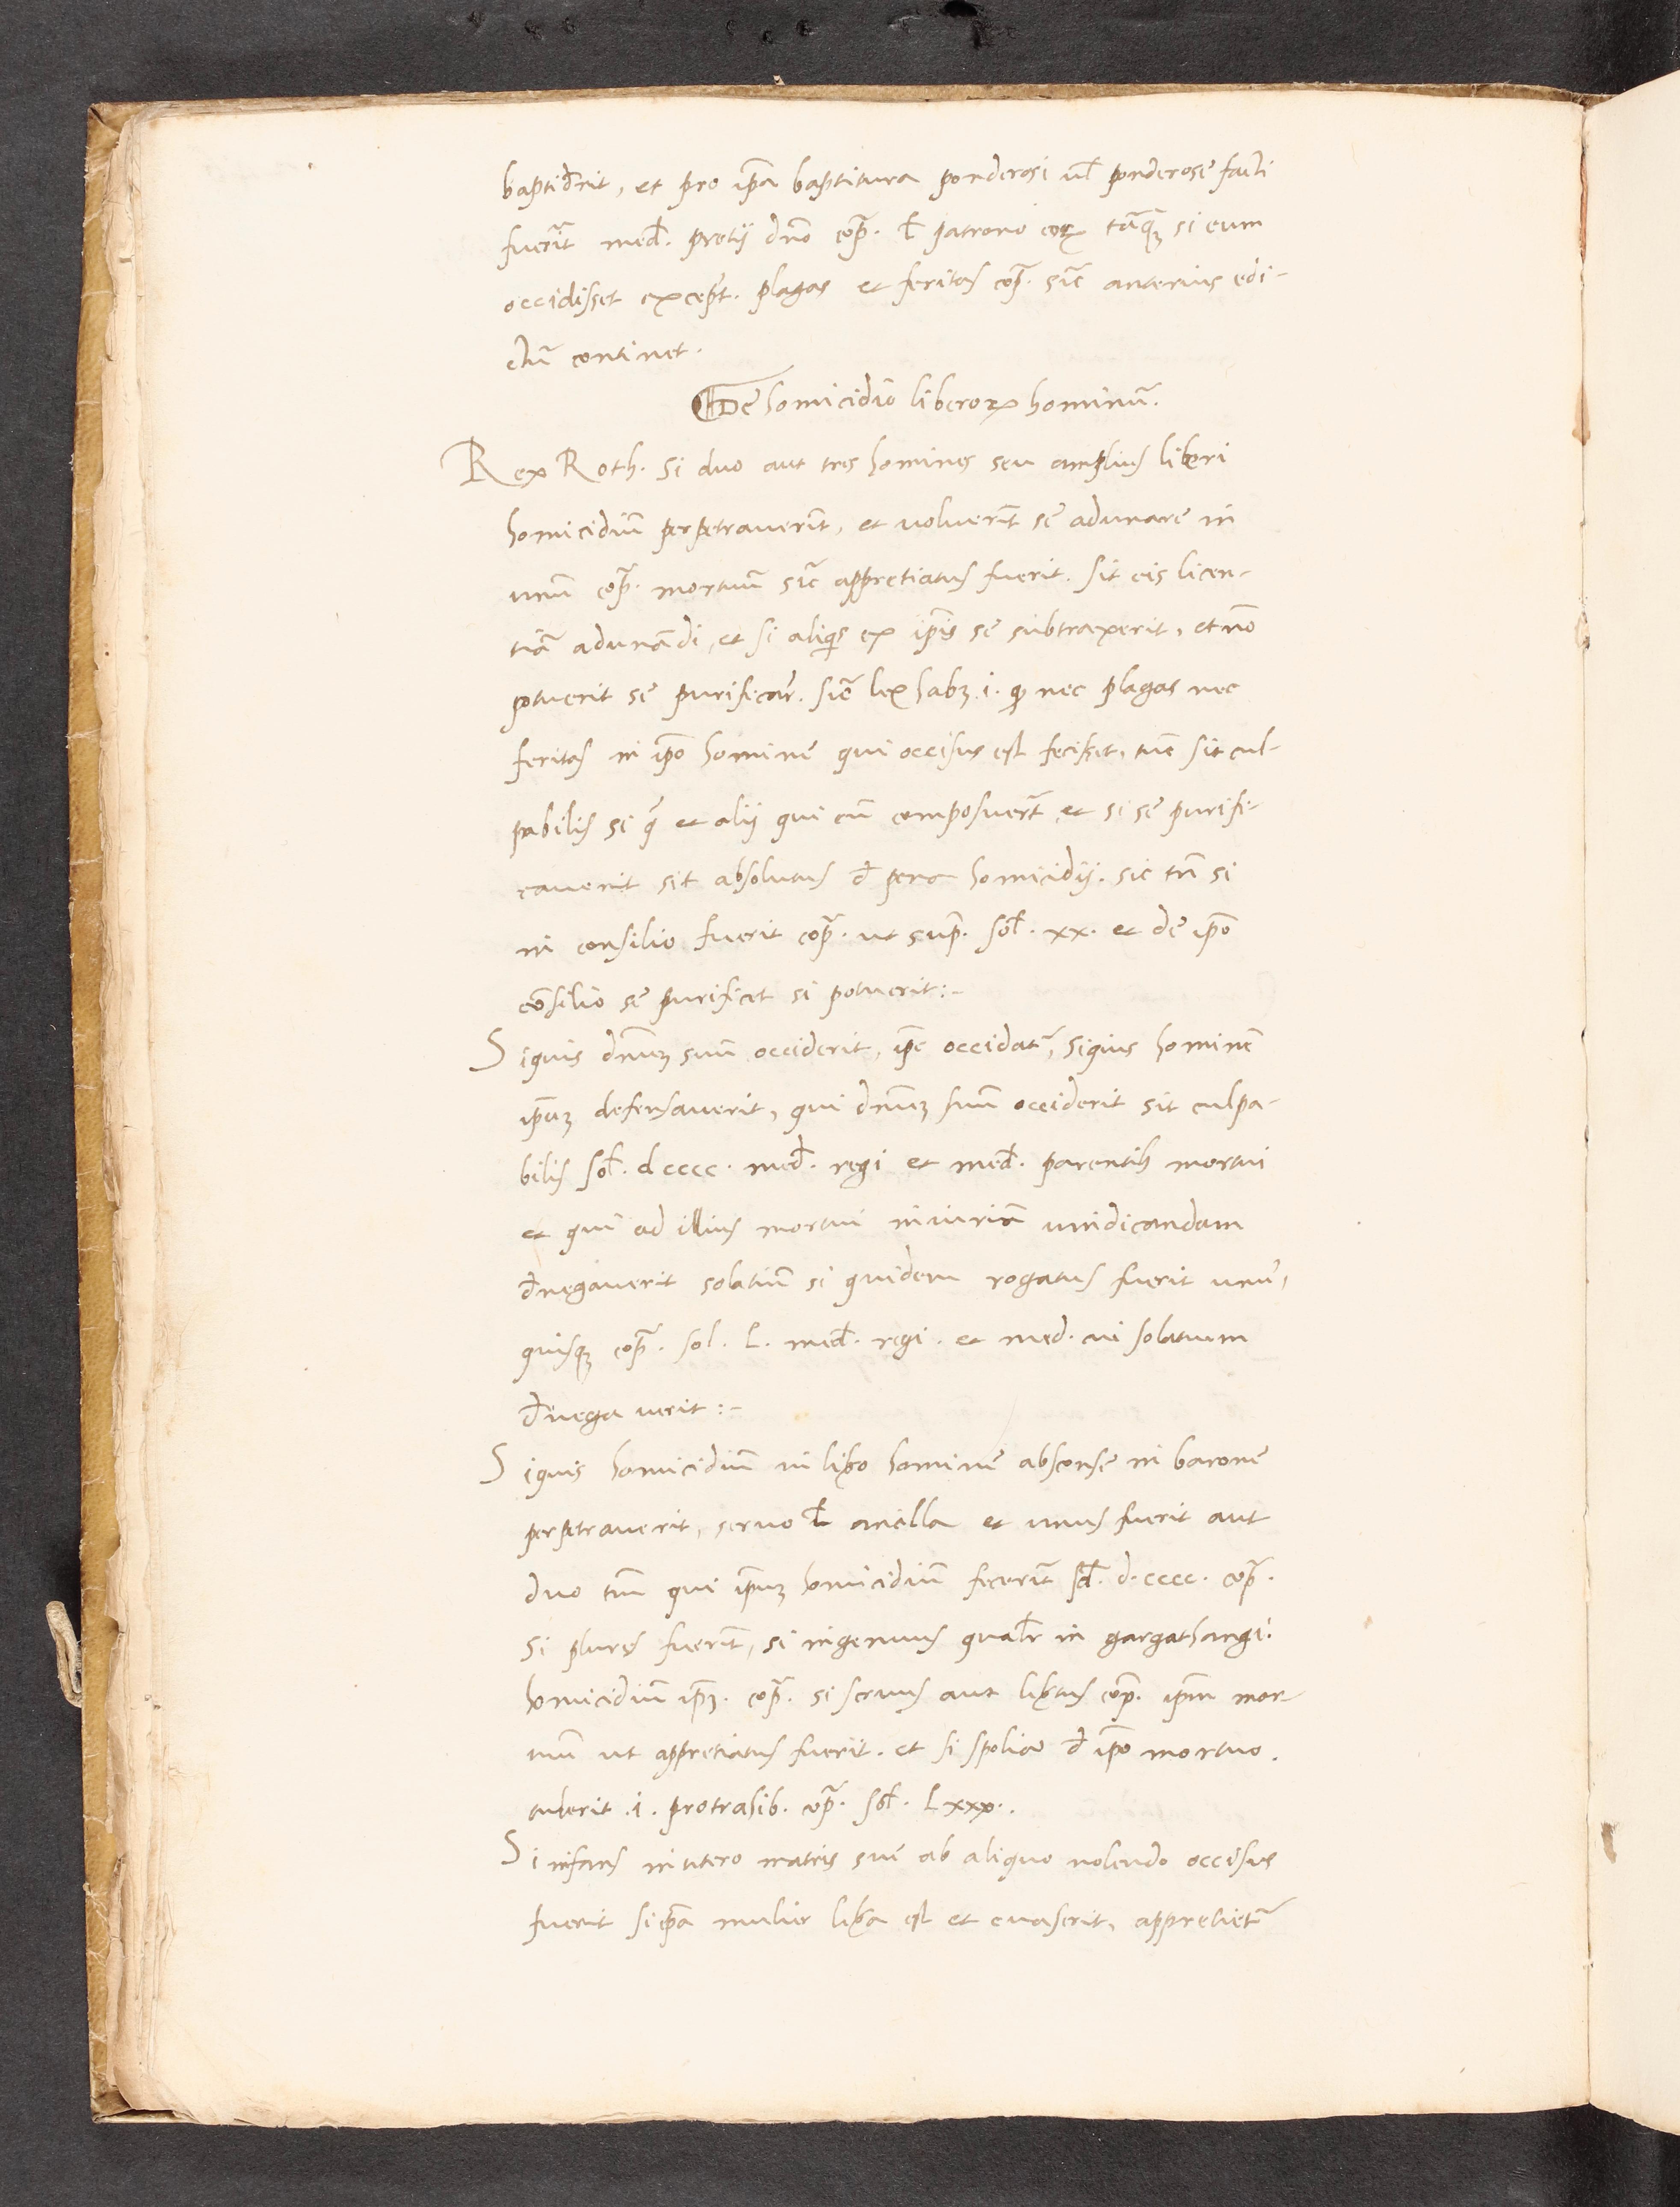 baptid̃rit, et pro ip̃a baptitura ponderosi ul̃ ponderose facti
fuerĩt med̃. pretij dño cõp̃. ł patrono eoꝝ tãqꝫ si eum
occidisset except̃. plagas et feritas cõp̃. sic̃ anterius edi-
ctũ continet.
De homicidio liberoꝝ hominũ.
Rex Roth. Si duo aut tres homines seu amplius liberi
homicidiũ perpetrauerĩt, et uoluerĩt se adunare in
unũ cõp̃. mortuũ sic̃ appretiatus fuerit. sit eis licen-
tiã adunãdi, et si aliq̃s ex ip̃is se subtraxerit, et nõ
potuerit se purificar̃. sic̃ lex habꝫ .i. qꝫ nec plagas nec
feritas in ip̃o homine qui occisus est fecisset, tũc sit cul-
pabilis si q̃ et alij qui cũ composuerĩt, et si se purifi-
cauerit sit absolutus đ pena homicidij. sic tñ si
in consilio fuerit cõp̃. ut sup̃. sol̃. xx. et de ip̃o
cõsilio se purificet si potuerit:-
Siquis dñuꝫ suũ occiderit, ip̃e occidat̃, siquis hominẽ
ip̃uꝫ defensauerit, qui dñuꝫ suũ occiderit sit culpa-
bilis sol̃. dcccc. med̃. regi et med̃. parentib̃ mortui
et qui ad illius mortui iniuriã uindicandam
đnegauerit solatiũ si quidem rogatus fuerit unus
quisqꝫ cõp̃. sol. L. med̃. regi. et med. cui solatium
đnegauerit:-
Siquis homicidiũ in lib̃o homine absconse in barone
perpetrauerit, seruo ł ancilla et unus fuerit aut
duo tñ qui ip̃uꝫ homicidiũ fecerĩt sol̃. d.cccc. cõp̃.
Si plures fuerĩt, si ingenuus qualr̃ in gargathangi.
homicidiũ ip̃ꝫ. cõp̃. si seruus aut lib̃tus cõp̃. ip̃m mor-
tuũ ut appretiatus fuerit. et si spolia đ ip̃o mortuo.
tulerit .i. protrasib. cõp̃. sol̃. Lxxx..
Si infans in utero matris sue ab aliquo nolendo occisus
fuerit si ip̃a mulier lib̃a est et euaserit, appretiet̃